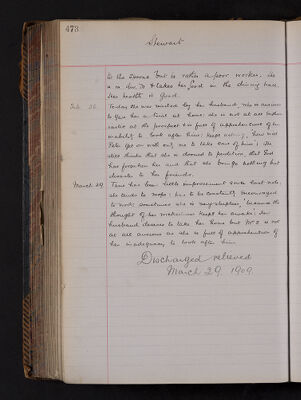 473
Stewart
in the Sewing Room but is rather a poor worker. She
is in div. IV & takes her food in the dining hall.
Her health is good.
Feb. 26. Today she was visited by her husband, who is anxious
to give her a trial at home. She is not at all enthu-
siastic at the prospect & is full of apprehensions of her
inability to look after him; keeps asking, "How will
Peter get on with only me to take care of him". She
still thinks that she is doomed to perdition, that God
has forsaken her and that she brings nothing but
disaster to her friends.
March 29 There has been little improvement since last note
she tends to mope & has to be constantly encouraged
to work; sometimes she is very sleepless, because the
thought of her wickedness keeps her awake. Her
husband desires to take her home but Mrs S is not
at all anxious as she is full of apprehension of
her inadequacy to look after him.
Discharged relieved
March 29 1909.